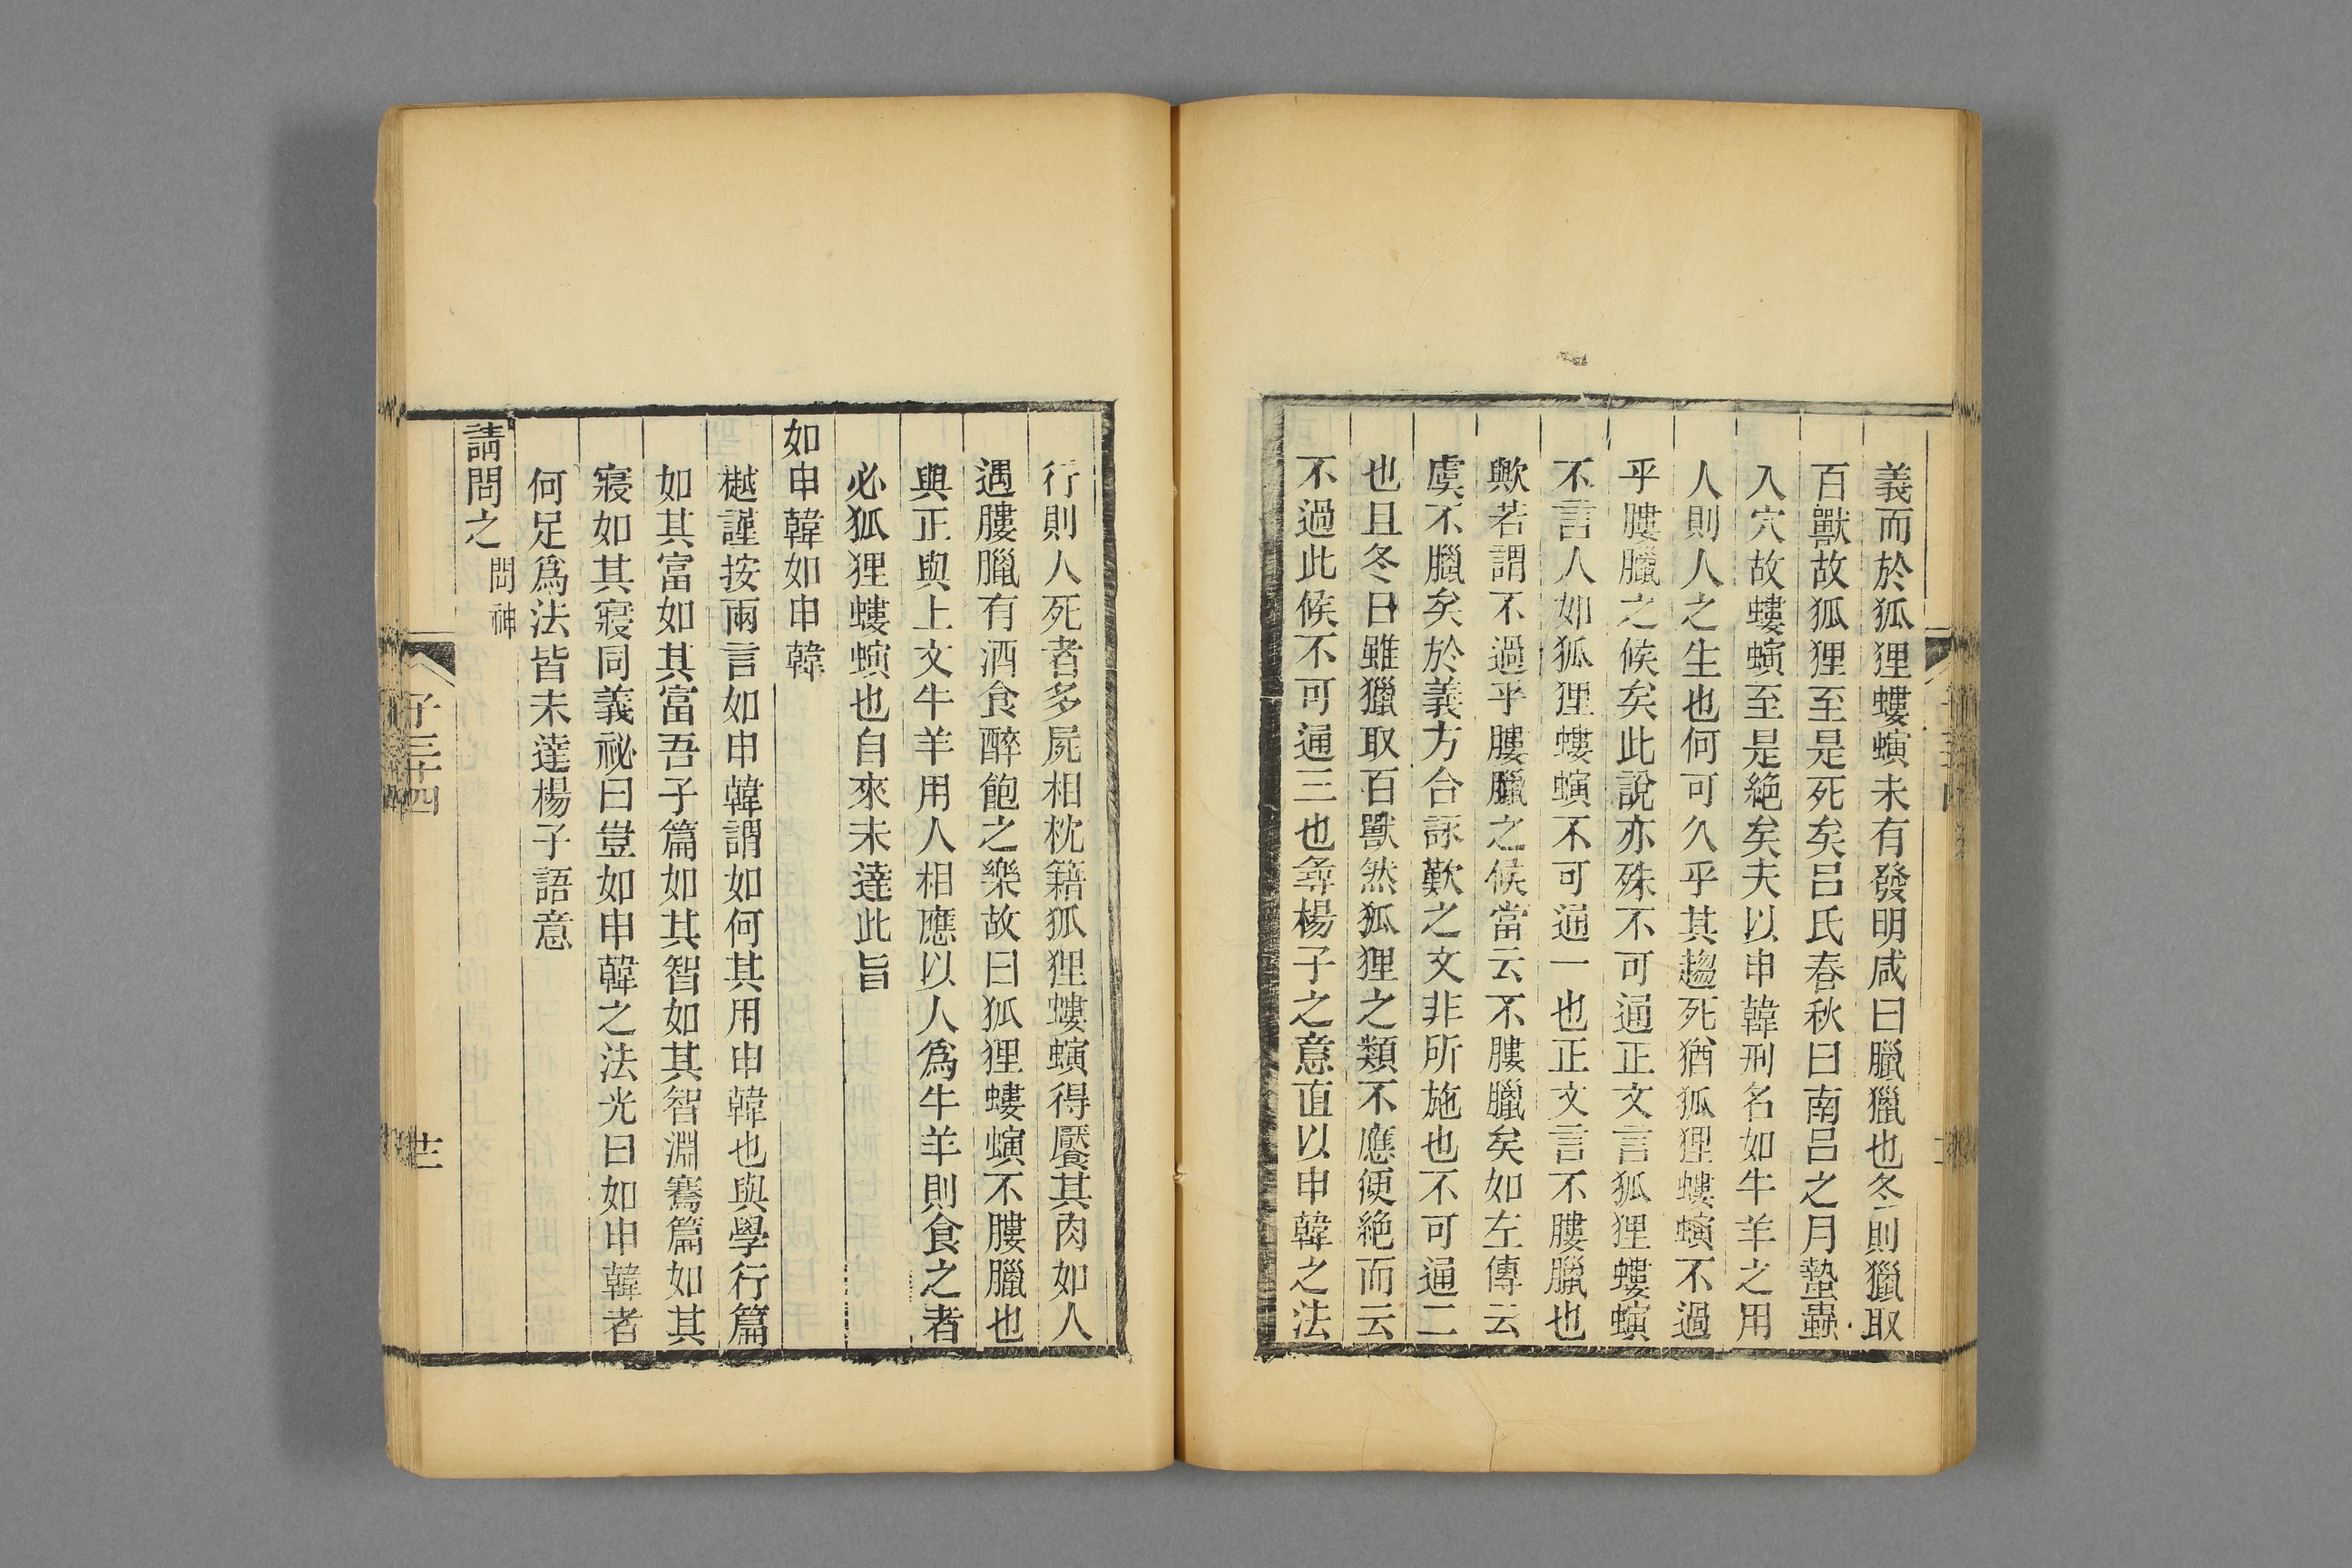 義而於狐狸螻螾未有發明咸曰臘獵也冬則獵取
百獸故狐狸至是死矣呂氏春秋曰南呂之月蟄蟲
入穴故螻螾至是絶矣夫以申韓刑名如牛羊之用
人則人之生也何可久乎其趨死猶狐狸螻螾不過
乎膢臘之候矣此說亦殊不可通正文言狐狸螻螾
不言人如狐狸螻螾不可通一也正文言不膢臘也
歟若謂不過乎膢臘之候當云不膢臘矣如左傳云
虞不臘矣於義方合詠歎之文非所施也不可通二
也且冬日雖獵取百獸然狐狸之類不應便絶而云
不過此候不可通三也尋楊子之意直以申韓之法
行則人死者多屍相枕籍狐狸螻螾得饜其肉如人
遇膢臘有酒食醉飽之樂故曰狐狸螻螾不膢臘也
與正與上文牛羊用人相應以人爲牛羊則食之者
必狐狸螻螾也自來未達此旨
如申韓如申韓
樾謹按兩言如申韓謂如何其用申韓也與學行篇
如其富如其富吾子篇如其智如其智淵騫篇如其
寢如其寢同義祕曰豈如申韓之法光曰如申韓者
何足爲法皆未達楊子語意
請問之 問神
子三十四
廿一